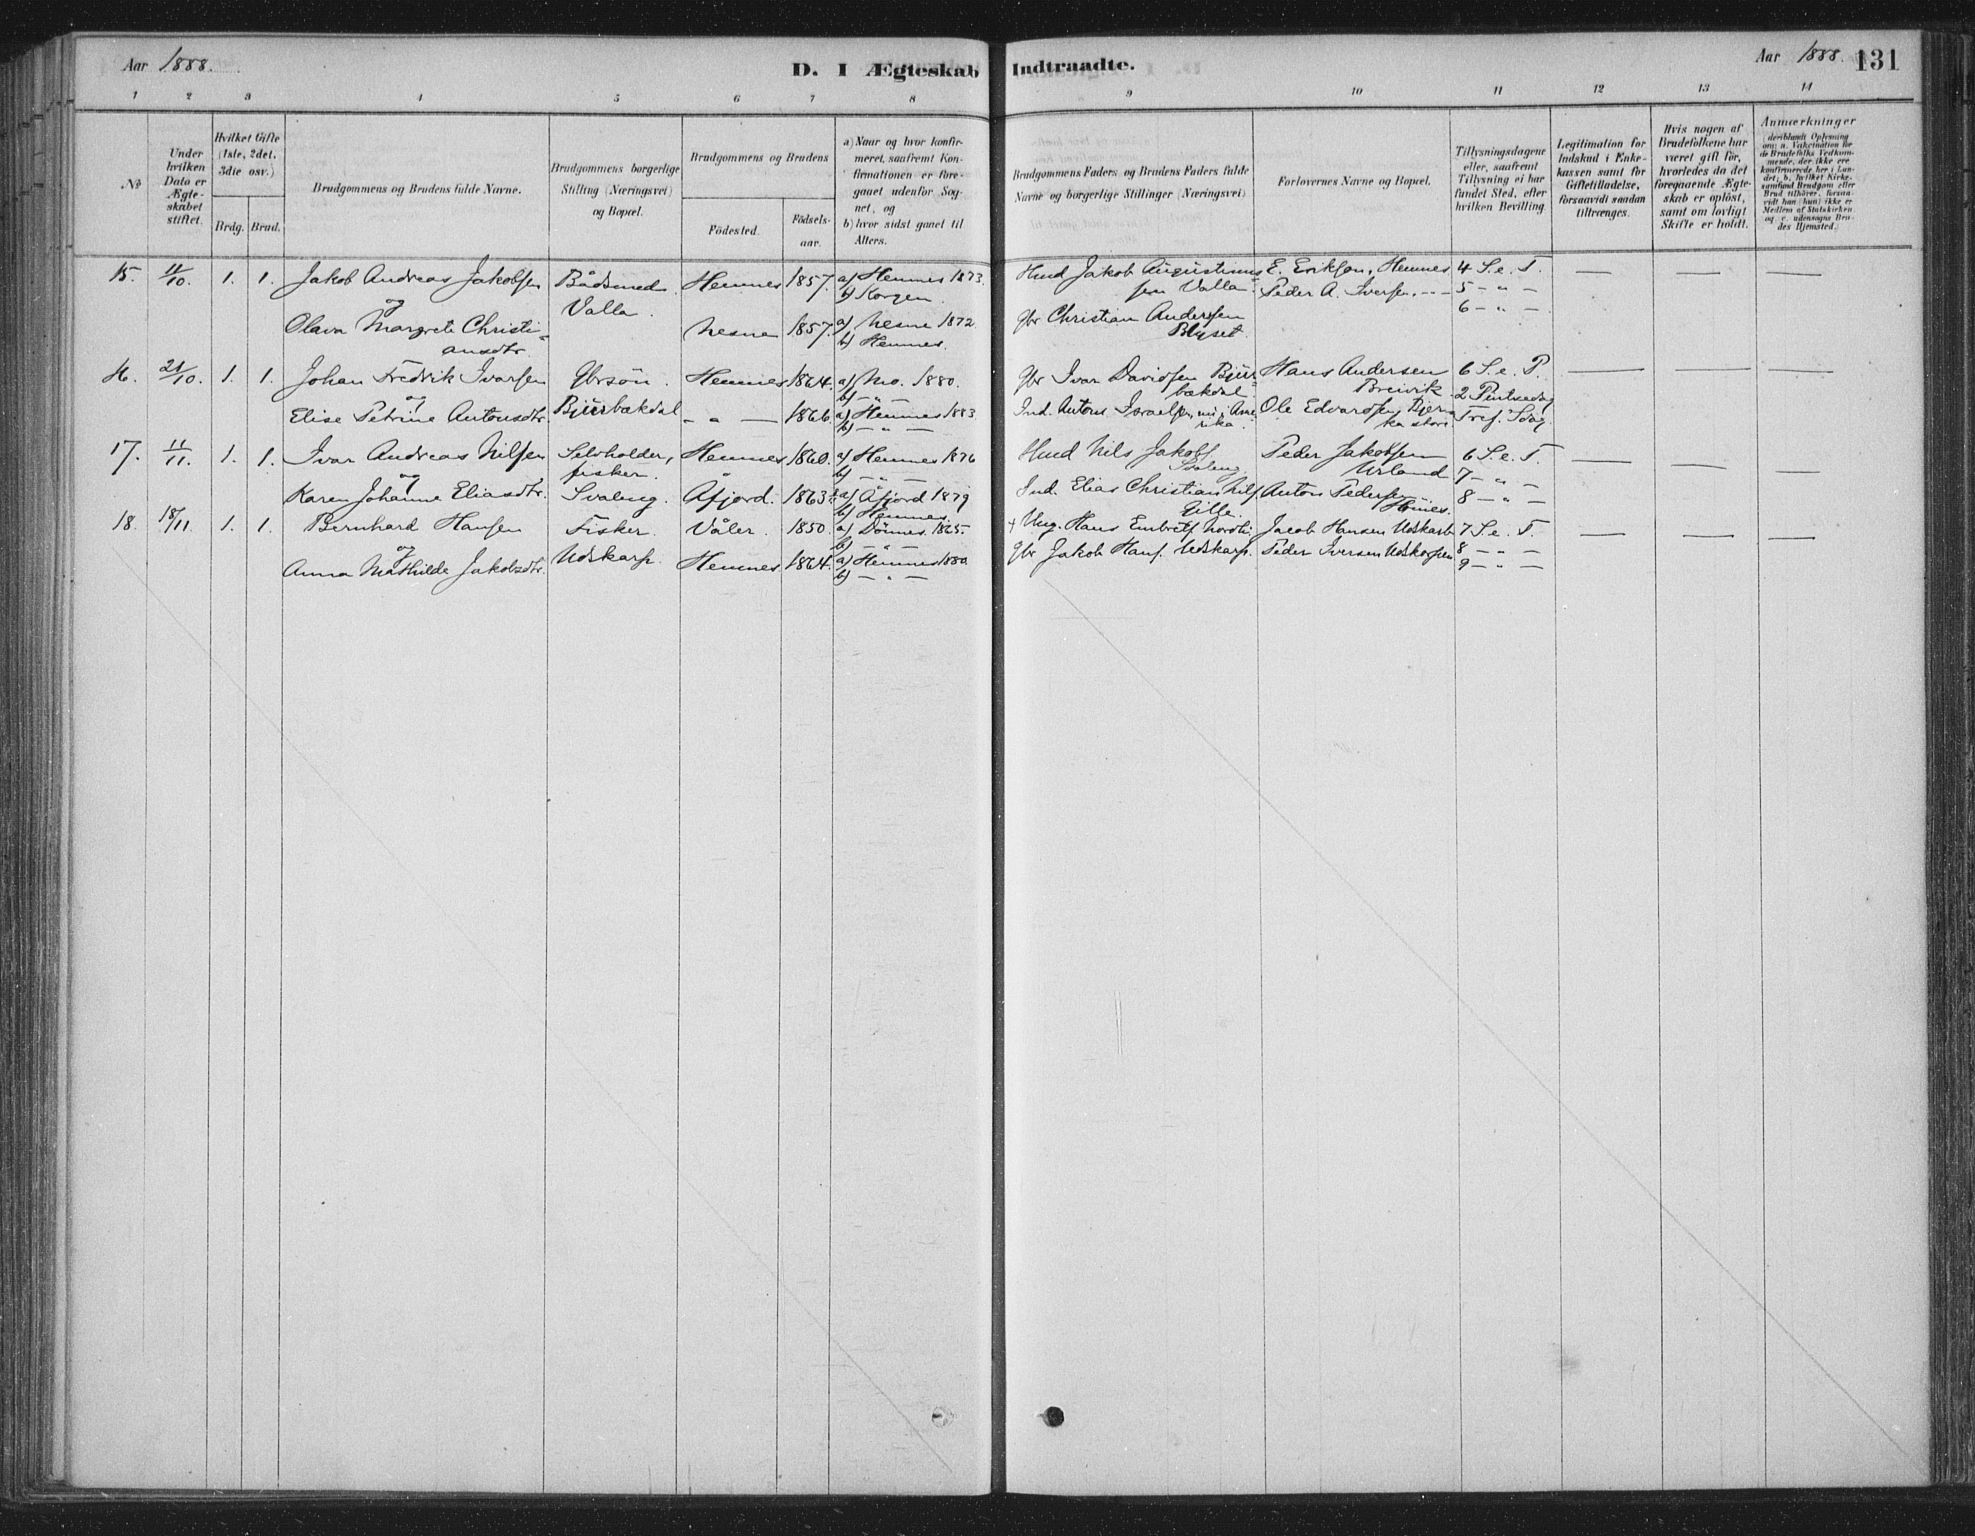 Aar 1888.
D. I Ægteskab Indtraadte.
Aar 1888. 131
1 2 3 4 5 6 7 8 9 10 11 12 13 14
No
Under hvilken Dato er Ægteskabet stiftet.
Hvilket Gifte (1ste, 2det, 3die osv.)
Brdg. Brud.
Brudgommens og Brudens fulde Navne.
Brudgommens borgerlige Stilling (Næringsvei) og Bopæl.
Brudgommens og Brudens
Födested. Födsels-aar.
a) Naar og hvor konfirmeret, saafremt Konfirmationen er foregaaet udenfor Sognet, og
b) hvor sidst gaaet til Alters.
Brudgommens Faders og Brudens Faders fulde Navne og borgerlige Stillinger (Næringsvei)
Forlovernes Navne og Bopæl.
Tillysningsdagene eller, saafremt Tillysning ei har fundet Sted, efter hvilken Bevilling.
Legitimation for Indskud i Enkekassen samt for Giftetilladelse, forsaavidt saadan tiltrænges.
Hvis nogen af Brudefolkene har været gift för, hvorledes da det foregaaende Ægteskab er oplöst, samt om lovligt Skifte er holdt.
Anmærkninger
(deriblandt Oplysning om: a. Vakcination for de Brudefolks Vedkommende, der ikke ere konfirmerede her i Landet; b. hvilket Kirkesamfund Brudgom eller Brud tilhörer, forsaavidt han (hun) ikke er Medlem af Statskirken og c. udensogns Brudes Hjemsted.)
15. 11/10. 1. 1. Jakob Andreas Jakobsen Bådsmed Hemnes 1857. a) Hemnes 1873. Hmd Jakob Augustinus E. Eriksen, Hemnes 4 S. e. T. — — —
og Valla. b) Korgen. sen Valla. Peder A. Iversen, - - 5 - " -
Olava Margrete Christi- Nesne 1857. a) Nesne 1872. Gbr Christian Andersen 6 - " -
ansdtr. b) Hemnes.
16. 21/10. 1. 1. Johan Fredrik Ivarsen Gbrsön. Hemnes 1864. a) Mo. 1880. Gbr Ivar Davidsen Bjur- Hans Andersen 6 S. e. P. — — —
og b) - " - bækdal Breivik 2 Pintsedag
Elise Petrine Antonsdtr. Bjurbækdal - " - 1866. a) Hemnes 1883 Ind. Antons Israelsen, nu i Ame- Ole Edvardsen Tref. Sdag.
b) - " - rika.
17. 11/11. 1. 1. Ivar Andreas Nilsen Selvholder, Hemnes 1860. a) Hemnes 1876 Hmd Nils Jakobs. Peder Jakobsen 6 S. e. T. — — —
og fisker. b) - " - Svaleng. Urland 7 - " -
Karen Johanne Eliasdtr. Svaleng. Åfjord. 1863 a) Åfjord 1879 Ind. Elias Christian Nils. Anton Pedersen 8 - " -
b) Hemnes.
18. 18/11. 1. 1. Bernhard Hansen Fisker. Våler. 1850. a) Dönnes 1865. + Ung. Hans Embrets. Jacob Hansen Udskarp. 7 S. e. T. — — —
og Udskarp. b) - " - Gbr Jakob Hans. Udskarp. Peder Iversen Udskarpen 8 - " -
Anna Mathilde Jakobsdtr. Hemnes 1864. a) Hemnes 1880 9 - " -
b) - " -